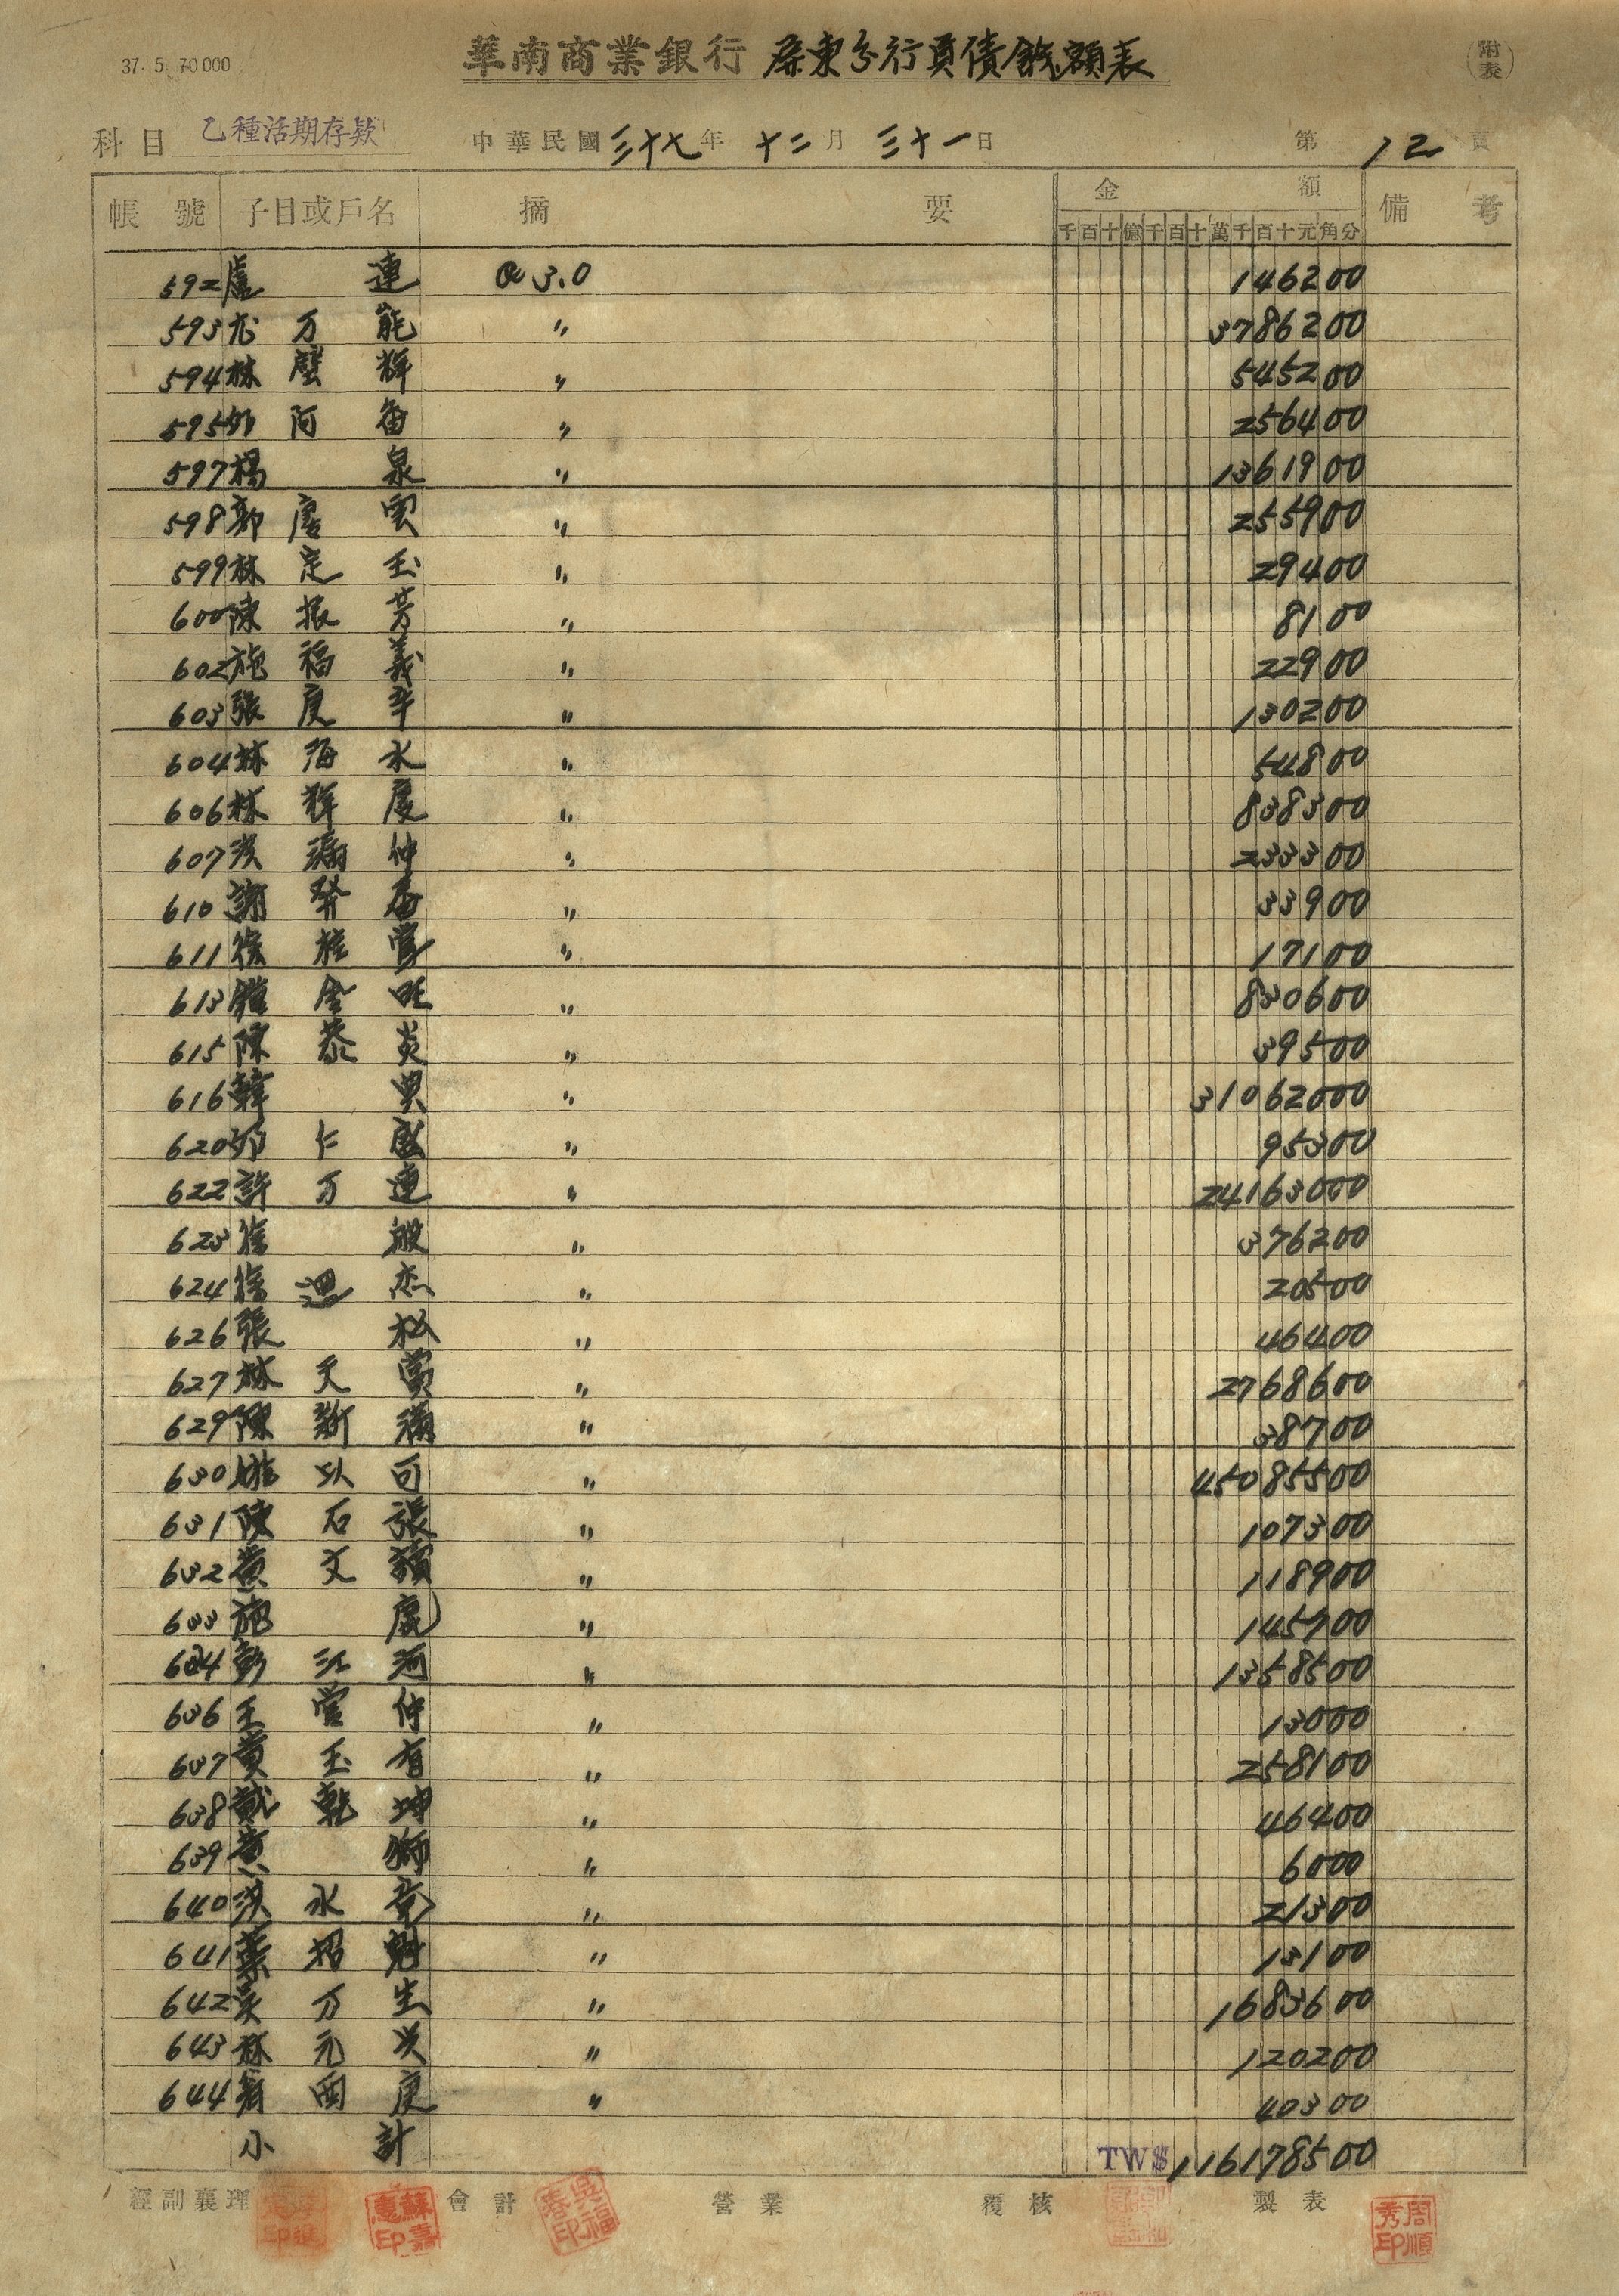 37. 5. 70000
華南商業銀行 屏東分行負債餘額表
附表
科目 乙種活期存款 中華民國三十七年 十二月 三十一日 第12頁
帳號 子目或戶名 摘要 金額 備考
千百十億千百十萬千百十元角分
592 盧連 @3.0 146200
593 尤万能 〃 3786200
594 林壁輝 〃 545200
595 邱阿番 〃 256400
597 楊泉 〃 1361900
598 郭慶雲 〃 255900
599 林定玉 〃 29400
600 陳振芳 〃 8100
602 施福義 〃 22900
603 張庚辛 〃 130200
604 林海永 〃 54800
606 林輝慶 〃 838300
607 洪滿仲 〃 233300
610 謝發香 〃 33900
611 徐桂 〃 17100
613 鍾金旺 〃 830600
615 陳恭炎 〃 39500
616 韓典 〃 31062000
620 邱仁 〃 95300
622 許万連 〃 24163000
623 徐般 〃 376200
624 徐迴杰 〃 20500
626 張松 〃 46400
627 林天 〃 2768600
629 陳新漢 〃 38700
630 施以可 〃 45085500
631 陳石張 〃 107300
632 黃文 〃 118900
633 施 〃 145900
634 彭江河 〃 1358500
636 王仲 〃 13000
637 黃玉有 〃 258100
638 戴乾坤 〃 46400
639 黃獅 〃 6000
640 洪永 〃 21300
641 葉招魁 〃 13100
642 吳万生 〃 1683600
643 林元 〃 120200
644 酉庚 〃 40300
小計 TW$ 116178500
經副襄理 會計 營業 覆核 製表
蘇嘉惠印
吳福春印
周順秀印